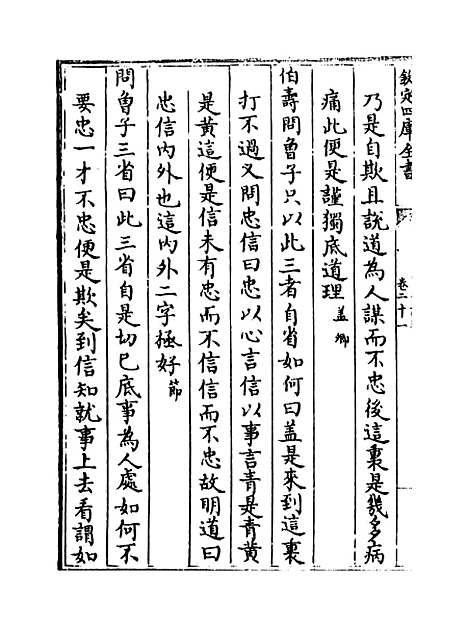 欽定四庫全書
卷二十一
乃是自欺且說道為人謀而不忠後這裏是幾多病
痛此便是謹獨底道理蓋卿
伯壽問曾子只以此三者自省如何曰盖是來到這裏
打不過又問忠信曰忠以心言信以事言青是青黃
是黃這便是信未有忠而不信信而不忠故明道曰
忠信內外也這內外二字極好節
問曾子三省曰此三省自是切己底事為人處如何不
要忠一才不忠便是欺矣到信知就事上去看謂如